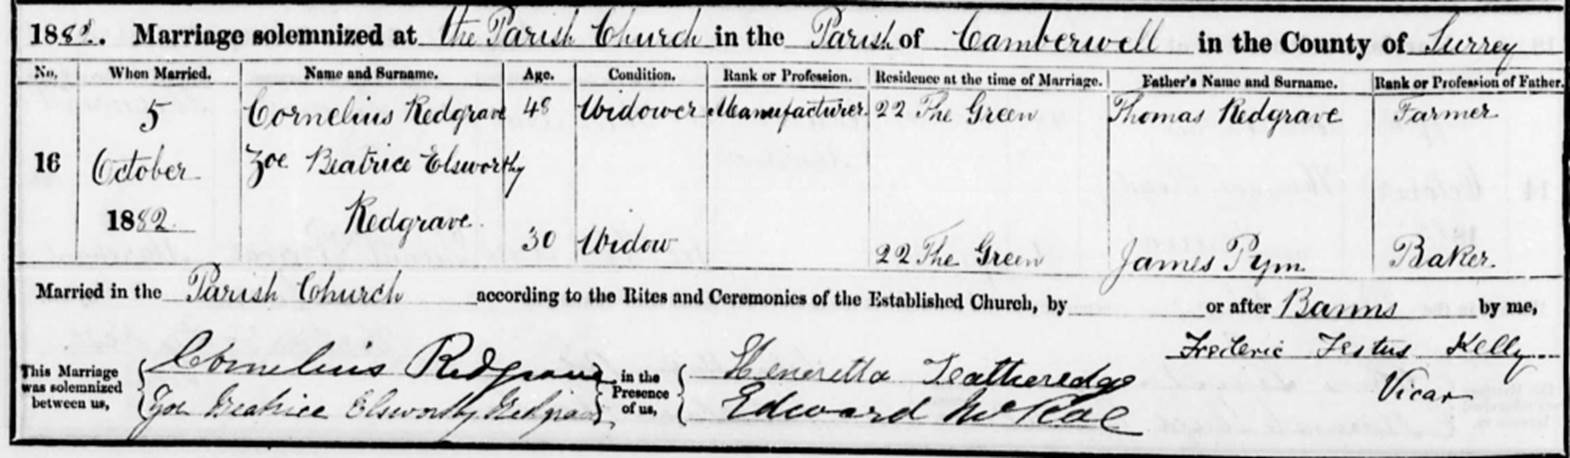 1882. Marriage solemnized at the Parish Church in the Parish of Camberwell in the County of Surrey
No. When Married. Name and Surname. Age. Condition. Rank or Profession. Residence at the time of Marriage. Father's Name and Surname. Rank or Profession of Father.
5 Cornelius Redgrave 48 Widower Manufacturer 22 The Green Thomas Redgrave Farmer
16 October Zoe Beatrice Elsworthy
1882 Redgrave 30 Widow 22 The Green James Pym Baker.
Married in the Parish Church according to the Rites and Ceremonies of the Established Church, by or after Banns by me,
This Marriage was solemnized between us, Cornelius Redgrave in the Presence of us, Henrietta Featheredge Frederic Festus Kelly
Zoe Beatrice Elsworthy Redgrave Edward McRae Vicar